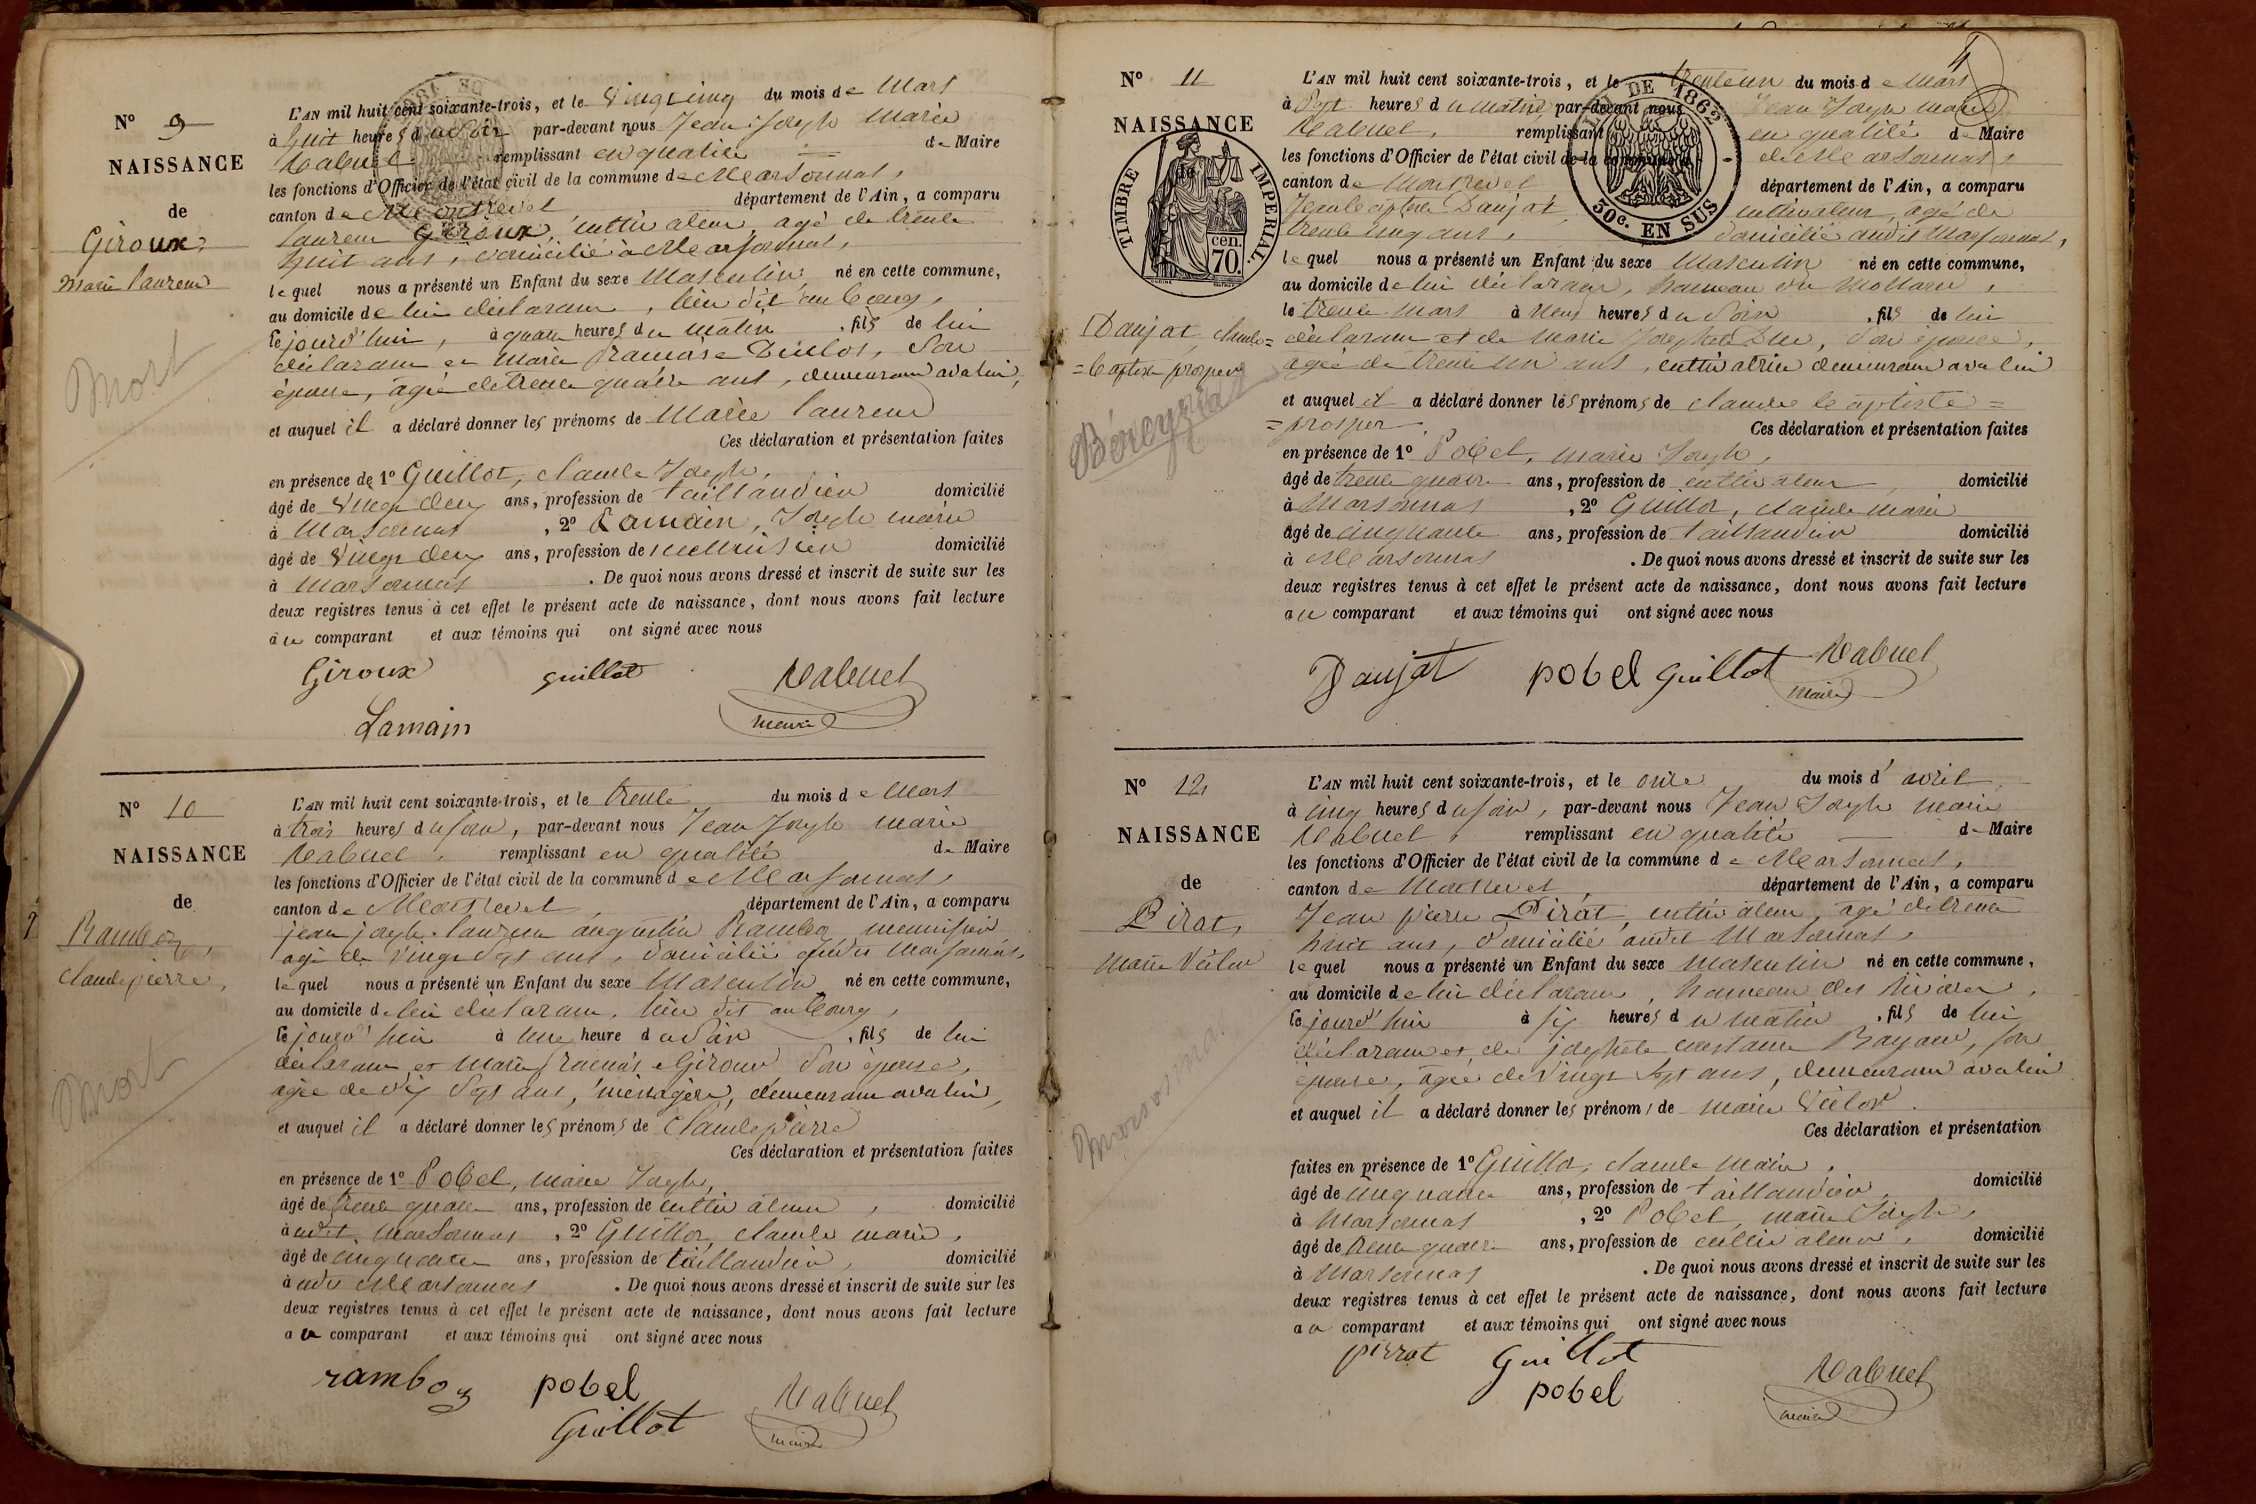 N° 9
NAISSANCE
de
Giroux,
marie laurent
Mort
L'AN mil huit cent soixante-trois, et le vingt cinq du mois de Mars
à huit heures du soir par-devant nous Jean Joseph Marie
Rabuel remplissant en qualité de Maire
les fonctions d'Officier de l'état civil de la commune de Marsonnas,
canton de Montrevel département de l'Ain, a comparu
laurent Giroux, cultivateur, agé de trente
huit ans, domicilié à Marsonnas,
lequel nous a présenté un Enfant du sexe Masculin, né en cette commune,
au domicile de lui déclarant, lieu dit au bourg,
cejourd'hui, à quatre heures du matin, fils de lui
déclarant et marie françoise Duclos, son
épouse, agée de trente quatre ans, demeurant avec lui,
et auquel il a déclaré donner les prénoms de Marie laurent
Ces déclaration et présentation faites
en présence de 1° Guillot, claude Joseph,
âgé de vingt deux ans, profession de taillandier domicilié
à Marsonnas, 2° Lamain, Joseph marie
âgé de vingt deux ans, profession de menuisier domicilié
à Marsonnas. De quoi nous avons dressé et inscrit de suite sur les
deux registres tenus à cet effet le présent acte de naissance, dont nous avons fait lecture
au comparant et aux témoins qui ont signé avec nous
Giroux guillot Rabuel
Lamain maire
N° 10
NAISSANCE
de
Ramboz,
claude pierre,
Mort
L'AN mil huit cent soixante-trois, et le trente du mois de Mars
à trois heures du soir, par-devant nous Jean Joseph marie
Rabuel, remplissant en qualité de Maire
les fonctions d'Officier de l'état civil de la commune de Marsonnas,
canton de Montrevel, département de l'Ain, a comparu
jean joseph laurent augustin Ramboz menuisier
agé de vingt sept ans, domicilié audit Marsonnas,
lequel nous a présenté un Enfant du sexe Masculin, né en cette commune,
au domicile de lui déclarant, lieu dit au bourg,
cejourd'hui à une heure du soir, fils de lui
déclarant et marie françoise Giroux son épouse,
agée de dix sept ans, ménagère, demeurant avec lui,
et auquel il a déclaré donner les prénoms de Claude pierre
Ces déclaration et présentation faites
en présence de 1° Pobel, marie Joseph,
âgé de trente quatre ans, profession de cultivateur, domicilié
à udit Marsonnas, 2° Guillot, claude marie,
âgé de cinquante ans, profession de taillandier, domicilié
à udit Marsonnas. De quoi nous avons dressé et inscrit de suite sur les
deux registres tenus à cet effet le présent acte de naissance, dont nous avons fait lecture
au comparant et aux témoins qui ont signé avec nous
ramboz pobel Rabuel
Guillot maire
4
N° 11
NAISSANCE
de
TIMBRE IMPERIAL
70 cen.
DE 1862
50c. EN SUS
Daujat, claude=
=baptiste prosper
Béreyziat
L'AN mil huit cent soixante-trois, et le trente un du mois de Mars
à sept heures du matin, par-devant nous Jean Joseph Marie
Rabuel, remplissant en qualité de Maire
les fonctions d'Officier de l'état civil de la commune de Marsonnas,
canton de Montrevel département de l'Ain, a comparu
Daujat, cultivateur, agé de
trente cinq ans, domicilié audit Marsonnas,
lequel nous a présenté un Enfant du sexe Masculin né en cette commune,
au domicile de lui déclarant, hameau du Mollard,
le trente Mars à neuf heures du soir, fils de lui
déclarant et de Marie Josephte son épouse,
agée de trente un ans, cultivatrice demeurant avec lui
et auquel il a déclaré donner les prénoms de claude baptiste=
=prosper. Ces déclaration et présentation faites
en présence de 1° Pobel, marie Joseph,
âgé de trente quatre ans, profession de cultivateur, domicilié
à Marsonnas, 2° Guillot, claude marie
âgé de cinquante ans, profession de taillandier domicilié
à Marsonnas. De quoi nous avons dressé et inscrit de suite sur les
deux registres tenus à cet effet le présent acte de naissance, dont nous avons fait lecture
au comparant et aux témoins qui ont signé avec nous
Daujat pobel Guillot Rabuel
maire
N° 12
NAISSANCE
de
Pirat,
Marie Victor
L'AN mil huit cent soixante-trois, et le onze du mois d'avril
à cinq heures du soir, par-devant nous Jean Joseph Marie
Rabuel, remplissant en qualité de Maire
les fonctions d'Officier de l'état civil de la commune de Marsonnas,
canton de Montrevel, département de l'Ain, a comparu
Jean pierre Pirat, cultivateur, agé de trente
huit ans, domicilié audit Marsonnas,
lequel nous a présenté un Enfant du sexe masculin né en cette commune,
au domicile de lui déclarant, hameau des
cejourd'hui à six heures du matin, fils de lui
déclarant et de josephte constance son
épouse, agée de vingt sept ans, demeurant avec lui
et auquel il a déclaré donner les prénoms de marie Victor.
Ces déclaration et présentation
faites en présence de 1° Guillot, claude Marie,
âgé de cinquante ans, profession de taillandier, domicilié
à Marsonnas, 2° Pobel, marie Joseph,
âgé de trente quatre ans, profession de cultivateur, domicilié
à Marsonnas. De quoi nous avons dressé et inscrit de suite sur les
deux registres tenus à cet effet le présent acte de naissance, dont nous avons fait lecture
au comparant et aux témoins qui ont signé avec nous
pirrat Guillot Rabuel
pobel maire